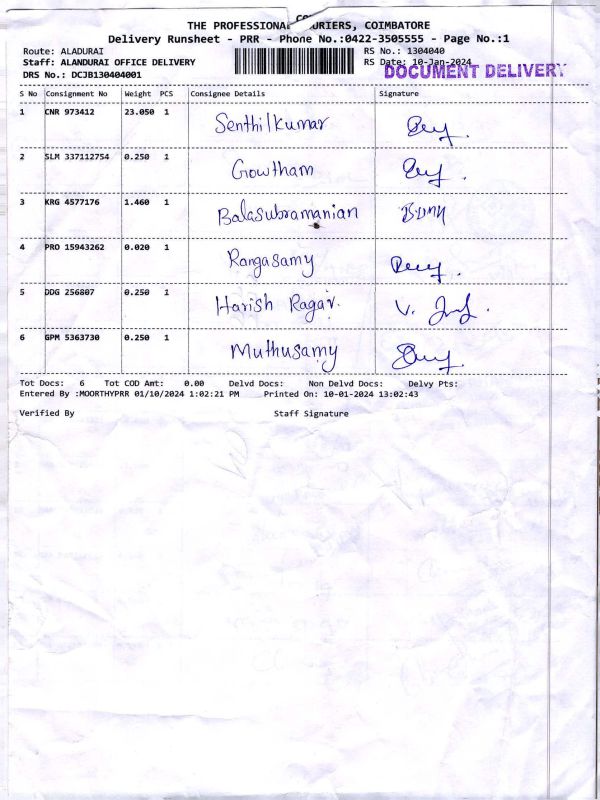 THE PROFESSIONAL COURIERS, COIMBATORE
Delivery Runsheet - PRR - Phone No.:0422-3505555 - Page No.:1
Route: ALADURAI RS No.: 1304040
Staff: ALANDURAI OFFICE DELIVERY RS Date: 10-Jan-2024
DRS No.: DCJB130404001 DOCUMENT DELIVERY
S No Consignment No Weight PCS Consignee Details Signature
1 CNR 973412 23.050 1 Senthilkumar
2 SLM 337112754 0.250 1 Gowtham
3 KRG 4577176 1.460 1 Balasubramanian
4 PRO 15943262 0.020 1 Rangasamy
5 DDG 256807 0.250 1 Harish Ragav.
6 GPM 5363730 0.250 1 Muthusamy
Tot Docs: 6 Tot COD Amt: 0.00 Delvd Docs: Non Delvd Docs: Delvy Pts:
Entered By :MOORTHYPRR 01/10/2024 1:02:21 PM Printed On: 10-01-2024 13:02:43
Verified By Staff Signature